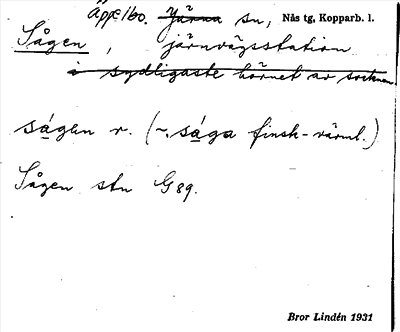 Äppelbo. Järna sn, Nås tg, Kopparb. l.
Sågen, järnvägsstation
i sydligaste hörnet av socknen.
ságen r. (~ sága finsk-värml.)
Sågen stn G 89.
Bror Lindén 1931